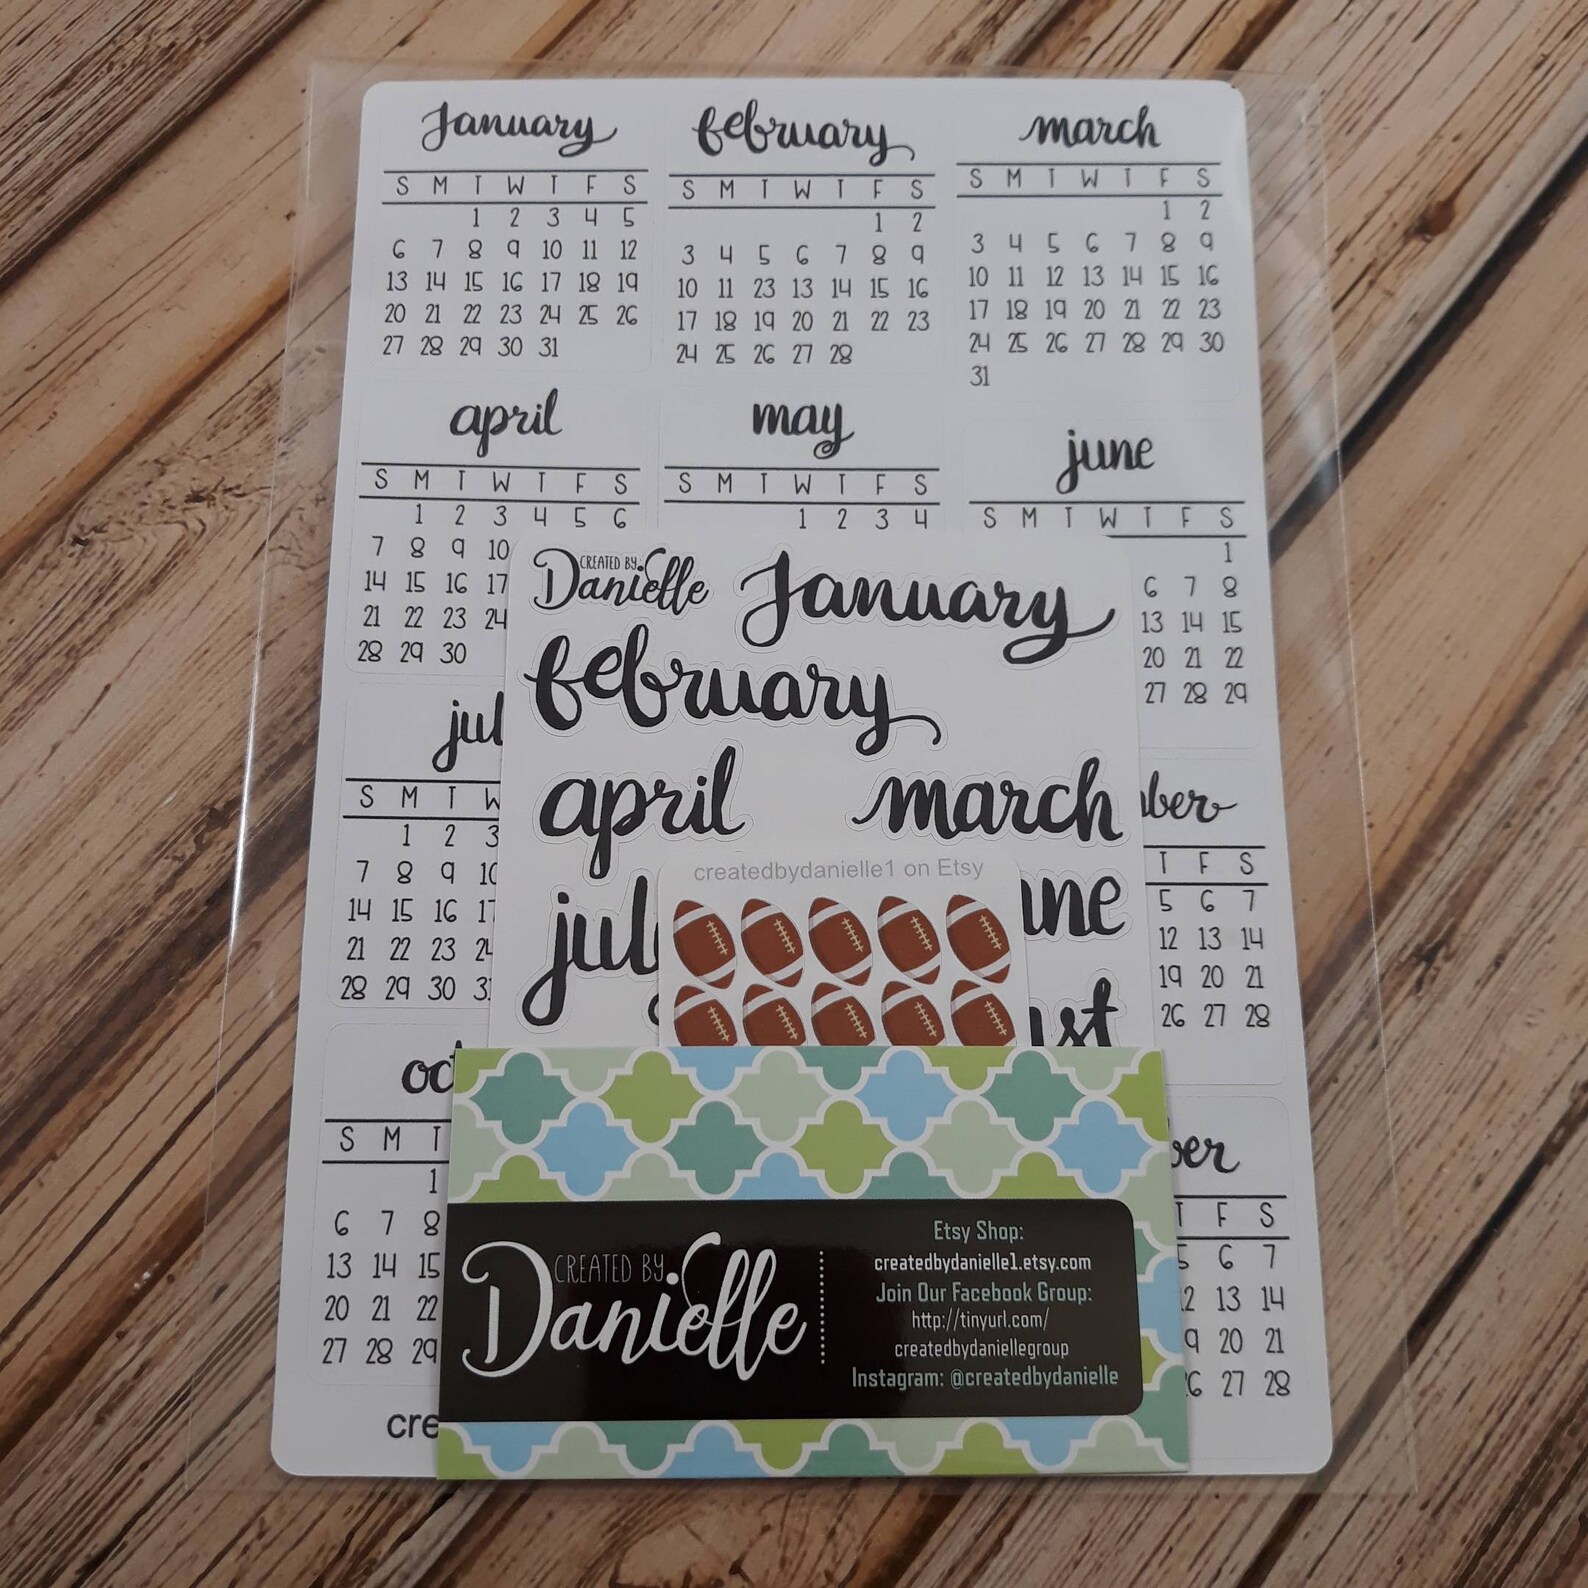 January
S M T W T F S
1 2 3 4 5
6 7 8 9 10 11 12
13 14 15 16 17 18 19
20 21 22 23 24 25 26
27 28 29 30 31
february
S M T W T F S
1 2
3 4 5 6 7 8 9
10 11 23 13 14 15 16
17 18 19 20 21 22 23
24 25 26 27 28
march
S M T W T F S
1 2
3 4 5 6 7 8 9
10 11 12 13 14 15 16
17 18 19 20 21 22 23
24 25 26 27 28 29 30
31
april
S M T W T F S
1 2 3 4 5 6
7 8 9 10
14 15 16 17
21 22 23 24
28 29 30
may
S M T W T F S
1 2 3 4
june
S M T W T F S
1
6 7 8
13 14 15
20 21 22
27 28 29
jul
S M T W
1 2 3
7 8 9
14 15 16 17
21 22 23 24
28 29 30
mber
T F S
5 6 7
12 13 14
19 20 21
26 27 28
oc
S M T
1
6 7 8
13 14 15
20 21 22
27 28 29
ber
T F S
5 6 7
12 13 14
20 21
27 28
cre
CREATED BY:
Danielle
January
february
april march
jul une
ust
createdbydanielle1 on Etsy
CREATED BY:
Danielle
Etsy Shop:
createdbydanielle1.etsy.com
Join Our Facebook Group:
http://tinyurl.com/
createdbydaniellegroup
Instagram: @createdbydanielle